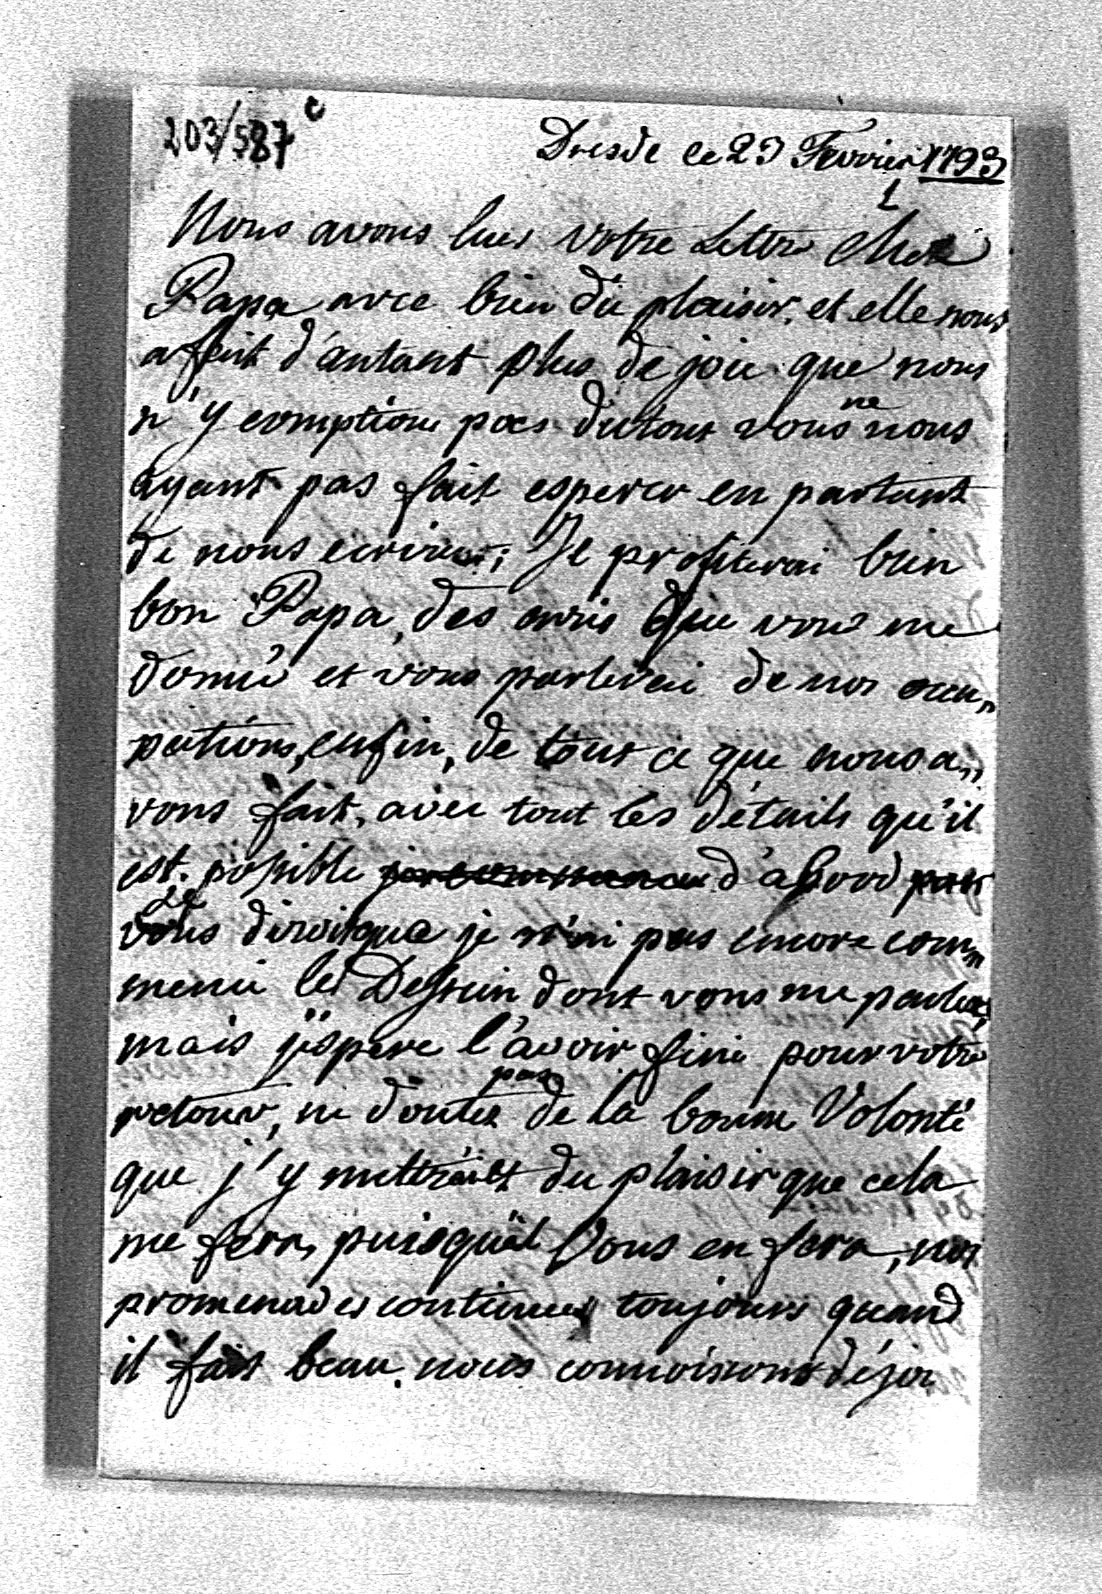 203/587 c
Dresde ce 23 Fevrier 1793
1
Nous avons lues votre Lettre Cher
Papa avec bien du plaisir, et elle nous
a fait d'autant plus de joie que nous
n'y comptions pas dutout vous ne nous
ayant pas fait esperer en partant
de nous ecrire; Je profiterai bien
bon Papa, des avis que vous me
donné et vous parlerai de nos occu„
pations, enfin, de tout ce que nous a„
vons fait, avec tout les détails qu'il
est possible d'abord
je vous dirai que je n'ai pas encore com„
mencé le Dessein dont vous me parlez,
mais j'espere l'avoir fini pour votre
retour, ne doutez pas de la bonne Volonté
que j'y mettrai et du plaisir que cela
me fera, puisqu'il Vous en fera, nos
promenades continues toujours quand
il fait beau. nous connoissons déja